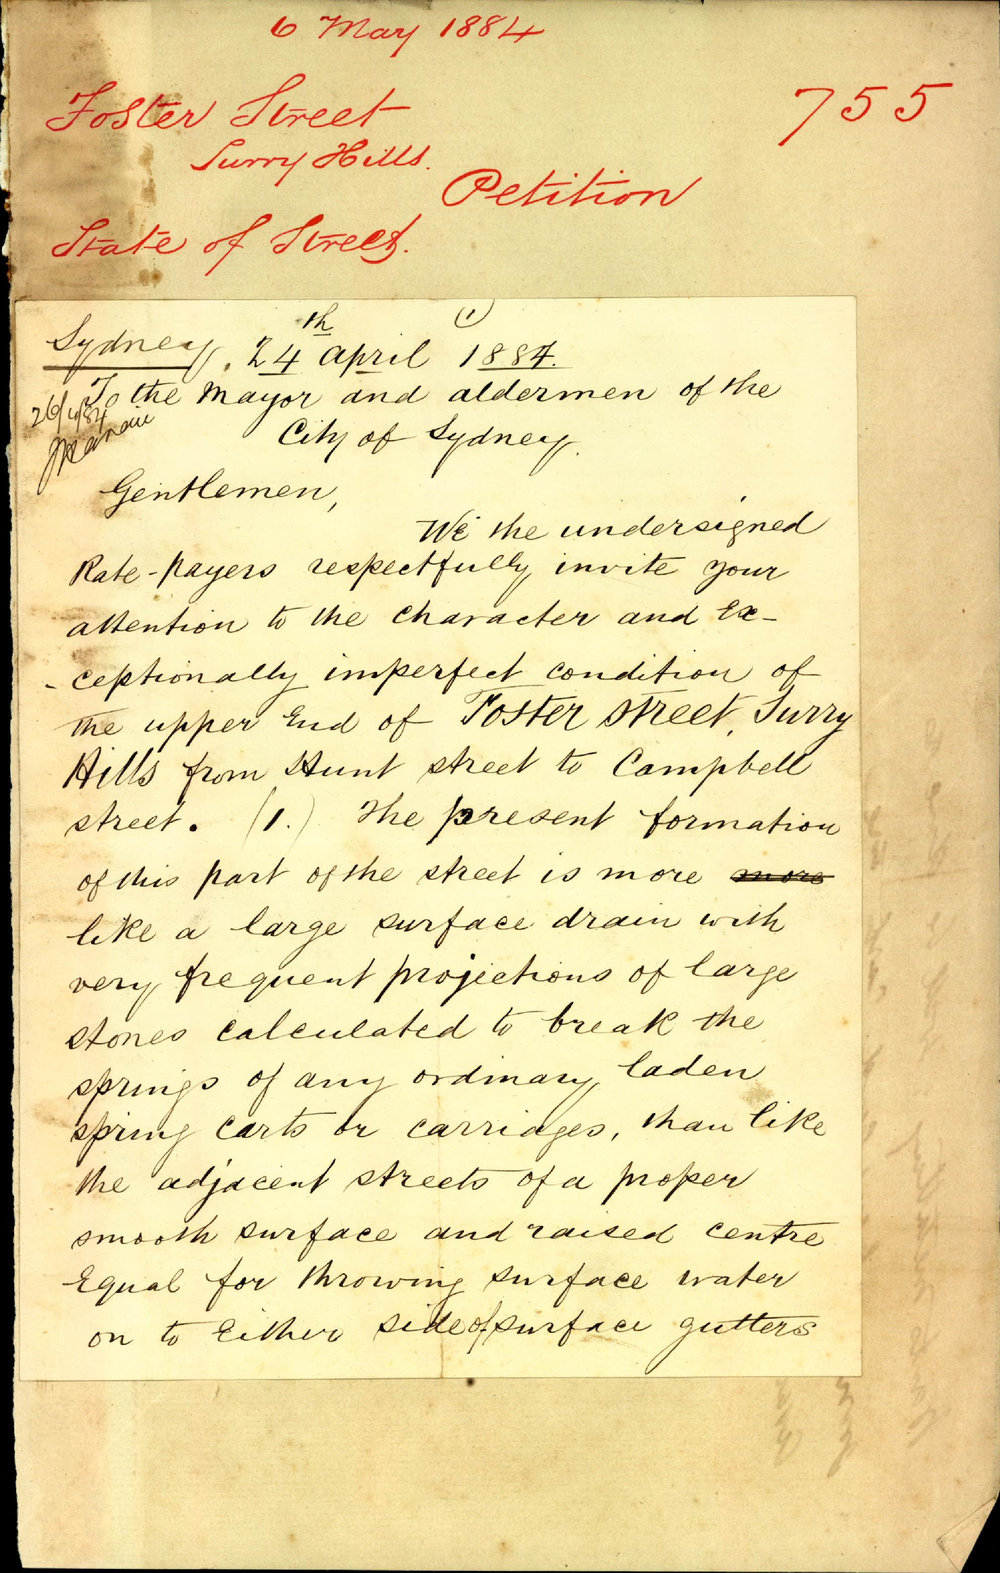 6 May 1884
755
Foster Street
Surry Hills.
Petition
State of Street.
(1)
Sydney, 24th april 1884.
To the Mayor and aldermen of the
26/4/84
City of Sydney.
Gentlemen,
We the undersigned
Rate-payers respectfully invite your
attention to the character and Ex-
-ceptionally imperfect condition of
the upper End of Foster street, Surry
Hills from Hunt street to Campbell
street. (1.) The present formation
of this part of the street is more more
like a large surface drain with
very frequent projections of large
stones calculated to break the
springs of any ordinary laden
spring carts or carriages, than like
the adjacent streets of a proper
smooth surface and raised centre
Equal for throwing surface water
on to Either side of surface gutters